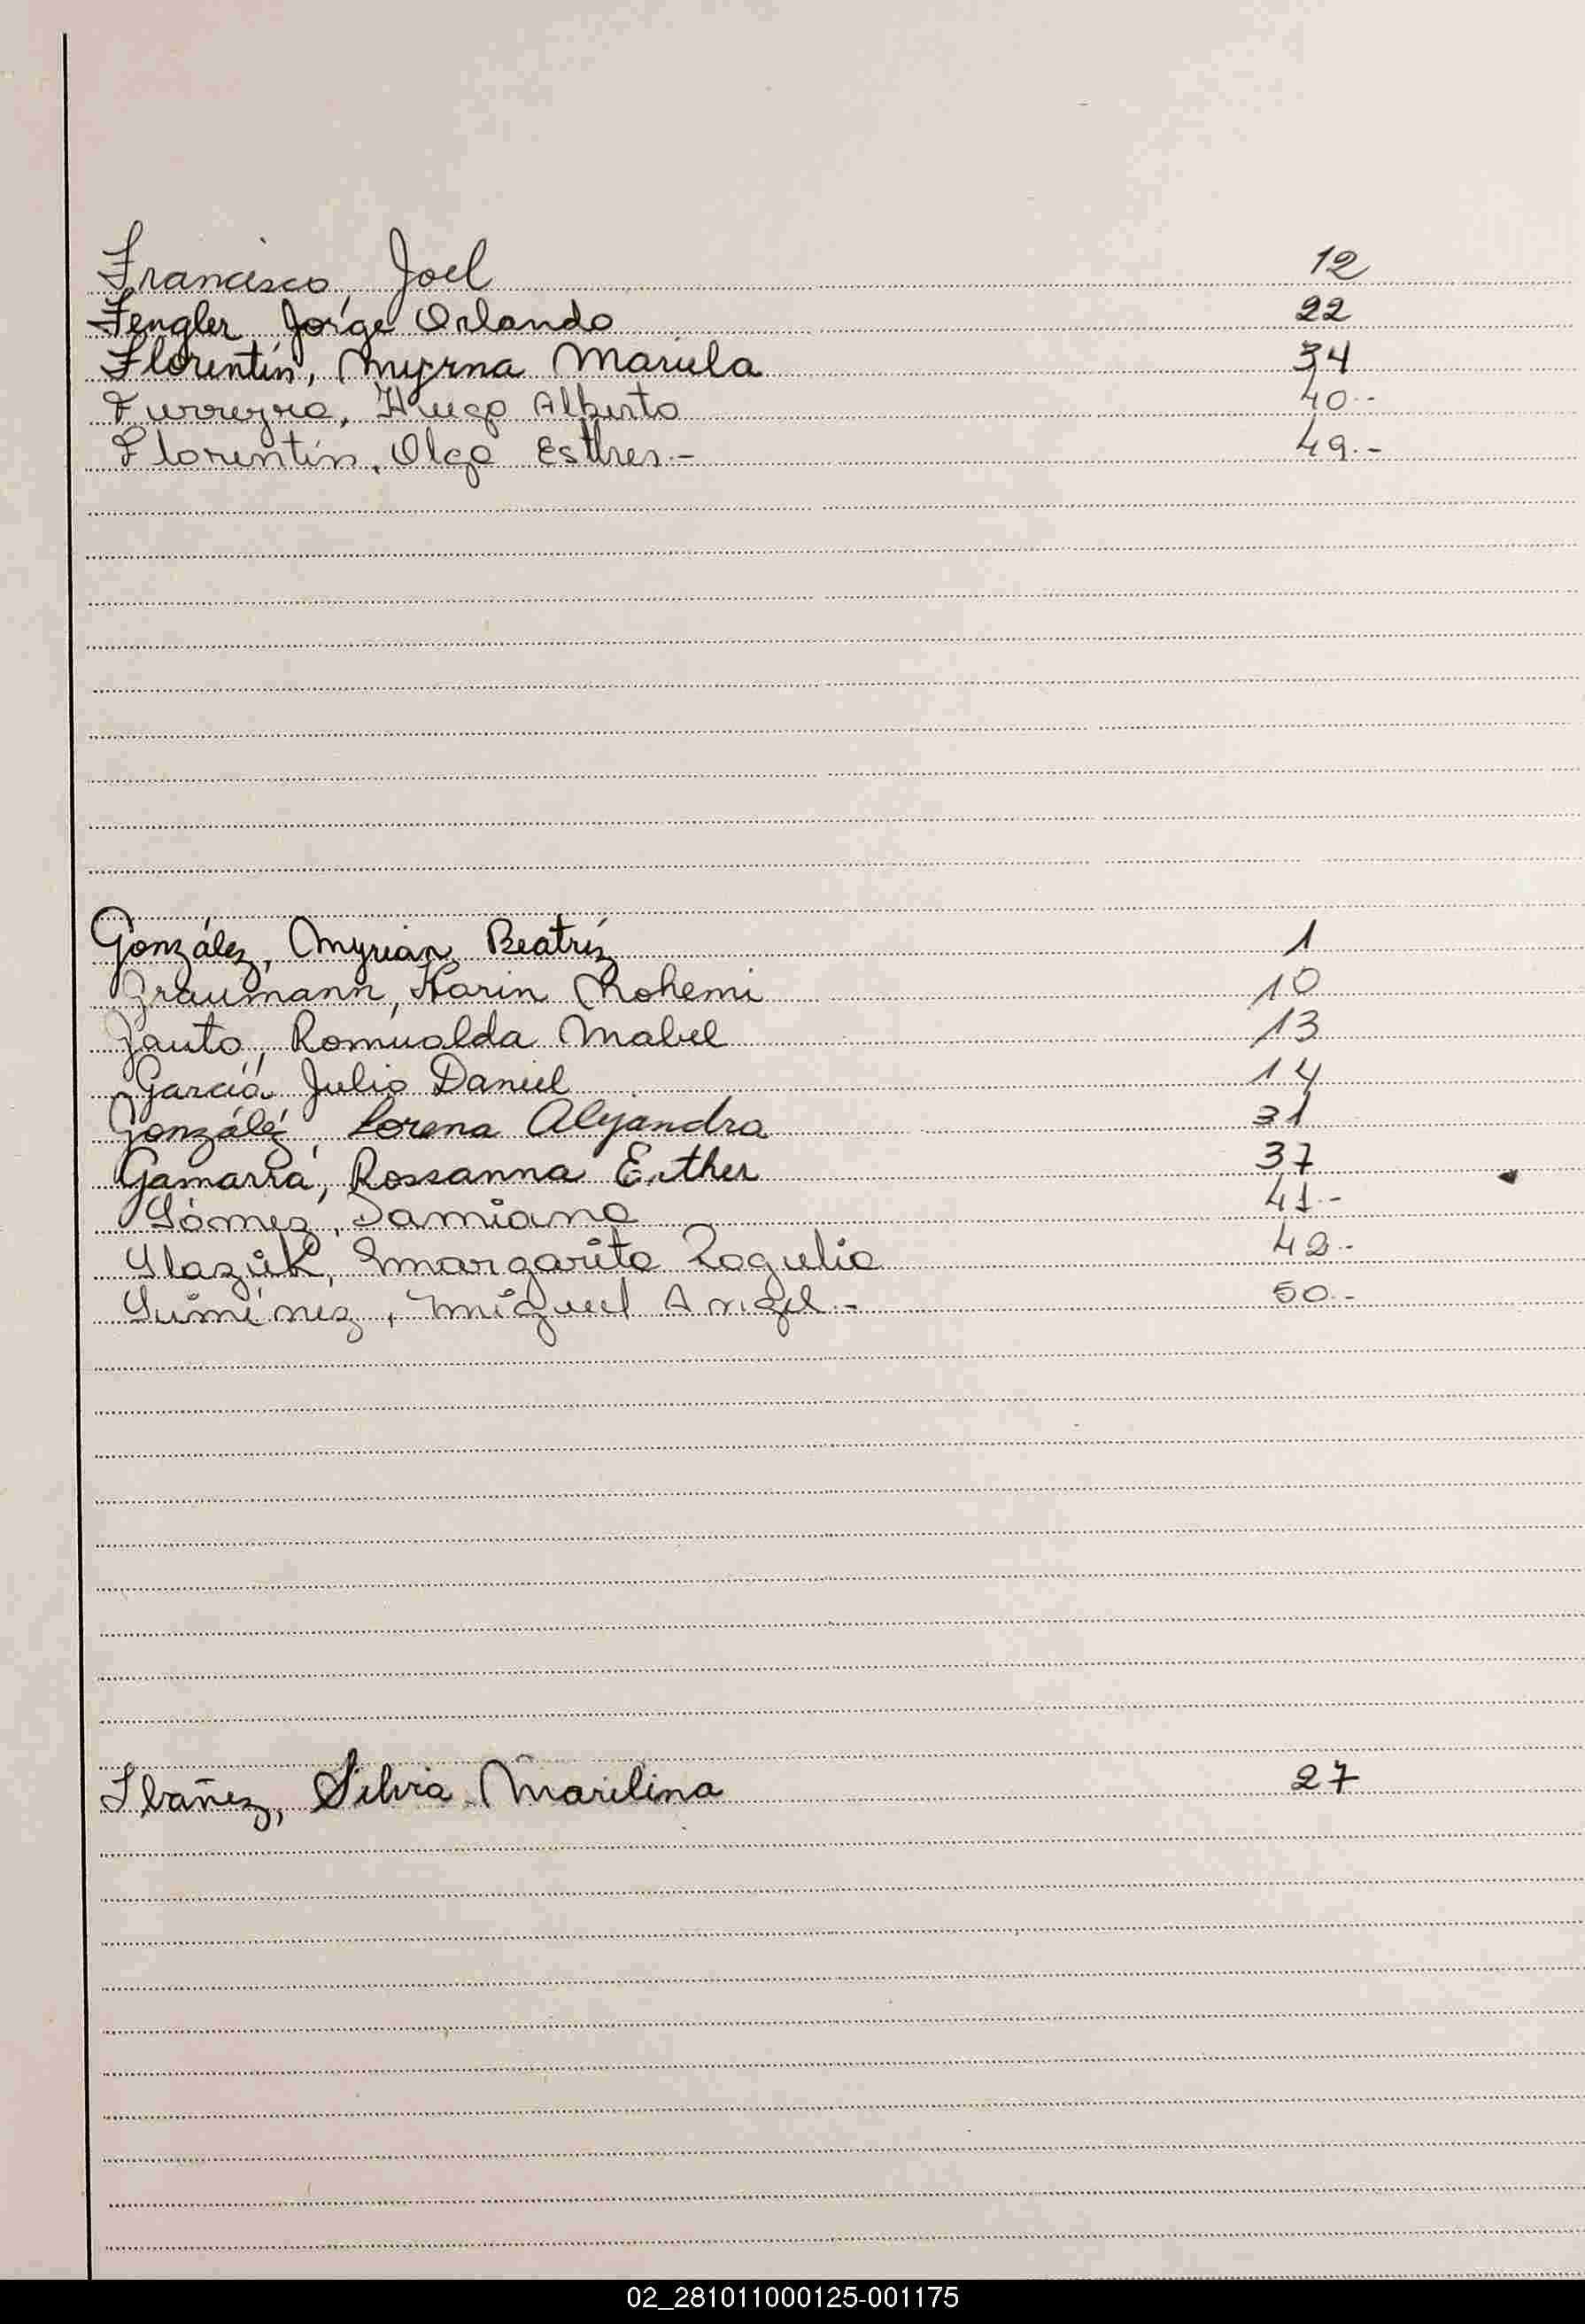 Francisco, Joel 12
Fengler Jorge Orlando 22
Florentín, Myrna Mariela 34
Ferreyra, Hugo Alberto 40.-
Florentín, Olga Esther.- 49.-
González, Myrian Beatríz 1
Graumann, Karin Nohemi 10
Gauto, Romualda Mabel 13
García Julio Daniel 14
Gonzáléz, Lorena Alejandra 31
Gamarra, Rossanna Esther 37
Gómez, Damiana 41.-
Glazúk, Margarita Rogelia 42.-
Giménez, Miguel Angel.- 50.-
Ibañez, Silvia Marilina 27
02_281011000125-001175